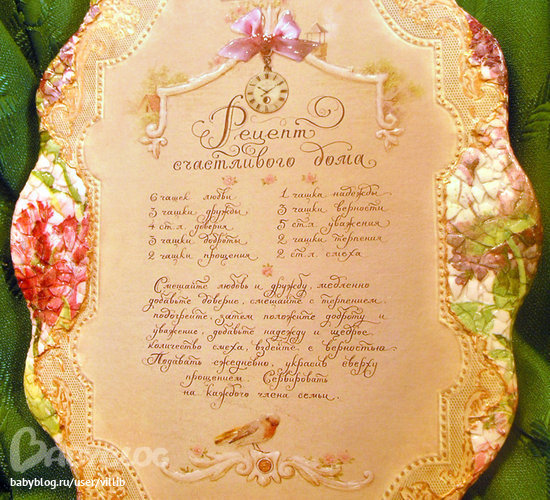 Рецепт
счастливого дома
6 чашек любви
3 чашки дружбы
4 ст.л. доверия
3 чашки доброты
2 чашки прощения
1 чашка надежды
3 чашки верности
5 ст.л. уважения
2 чашки терпения
2 ст.л. смеха
Смешайте любовь и дружбу, медленно
добавьте доверие, смешайте с терпением,
подогрейте, затем положите доброту и
уважение, добавьте надежду и щедрое
количество смеха, взбейте, с верностью.
Подавать ежедневно, украсив сверху
прощением. Сервировать
на каждого члена семьи.
BABYBLOG
babyblog.ru/user/vilib